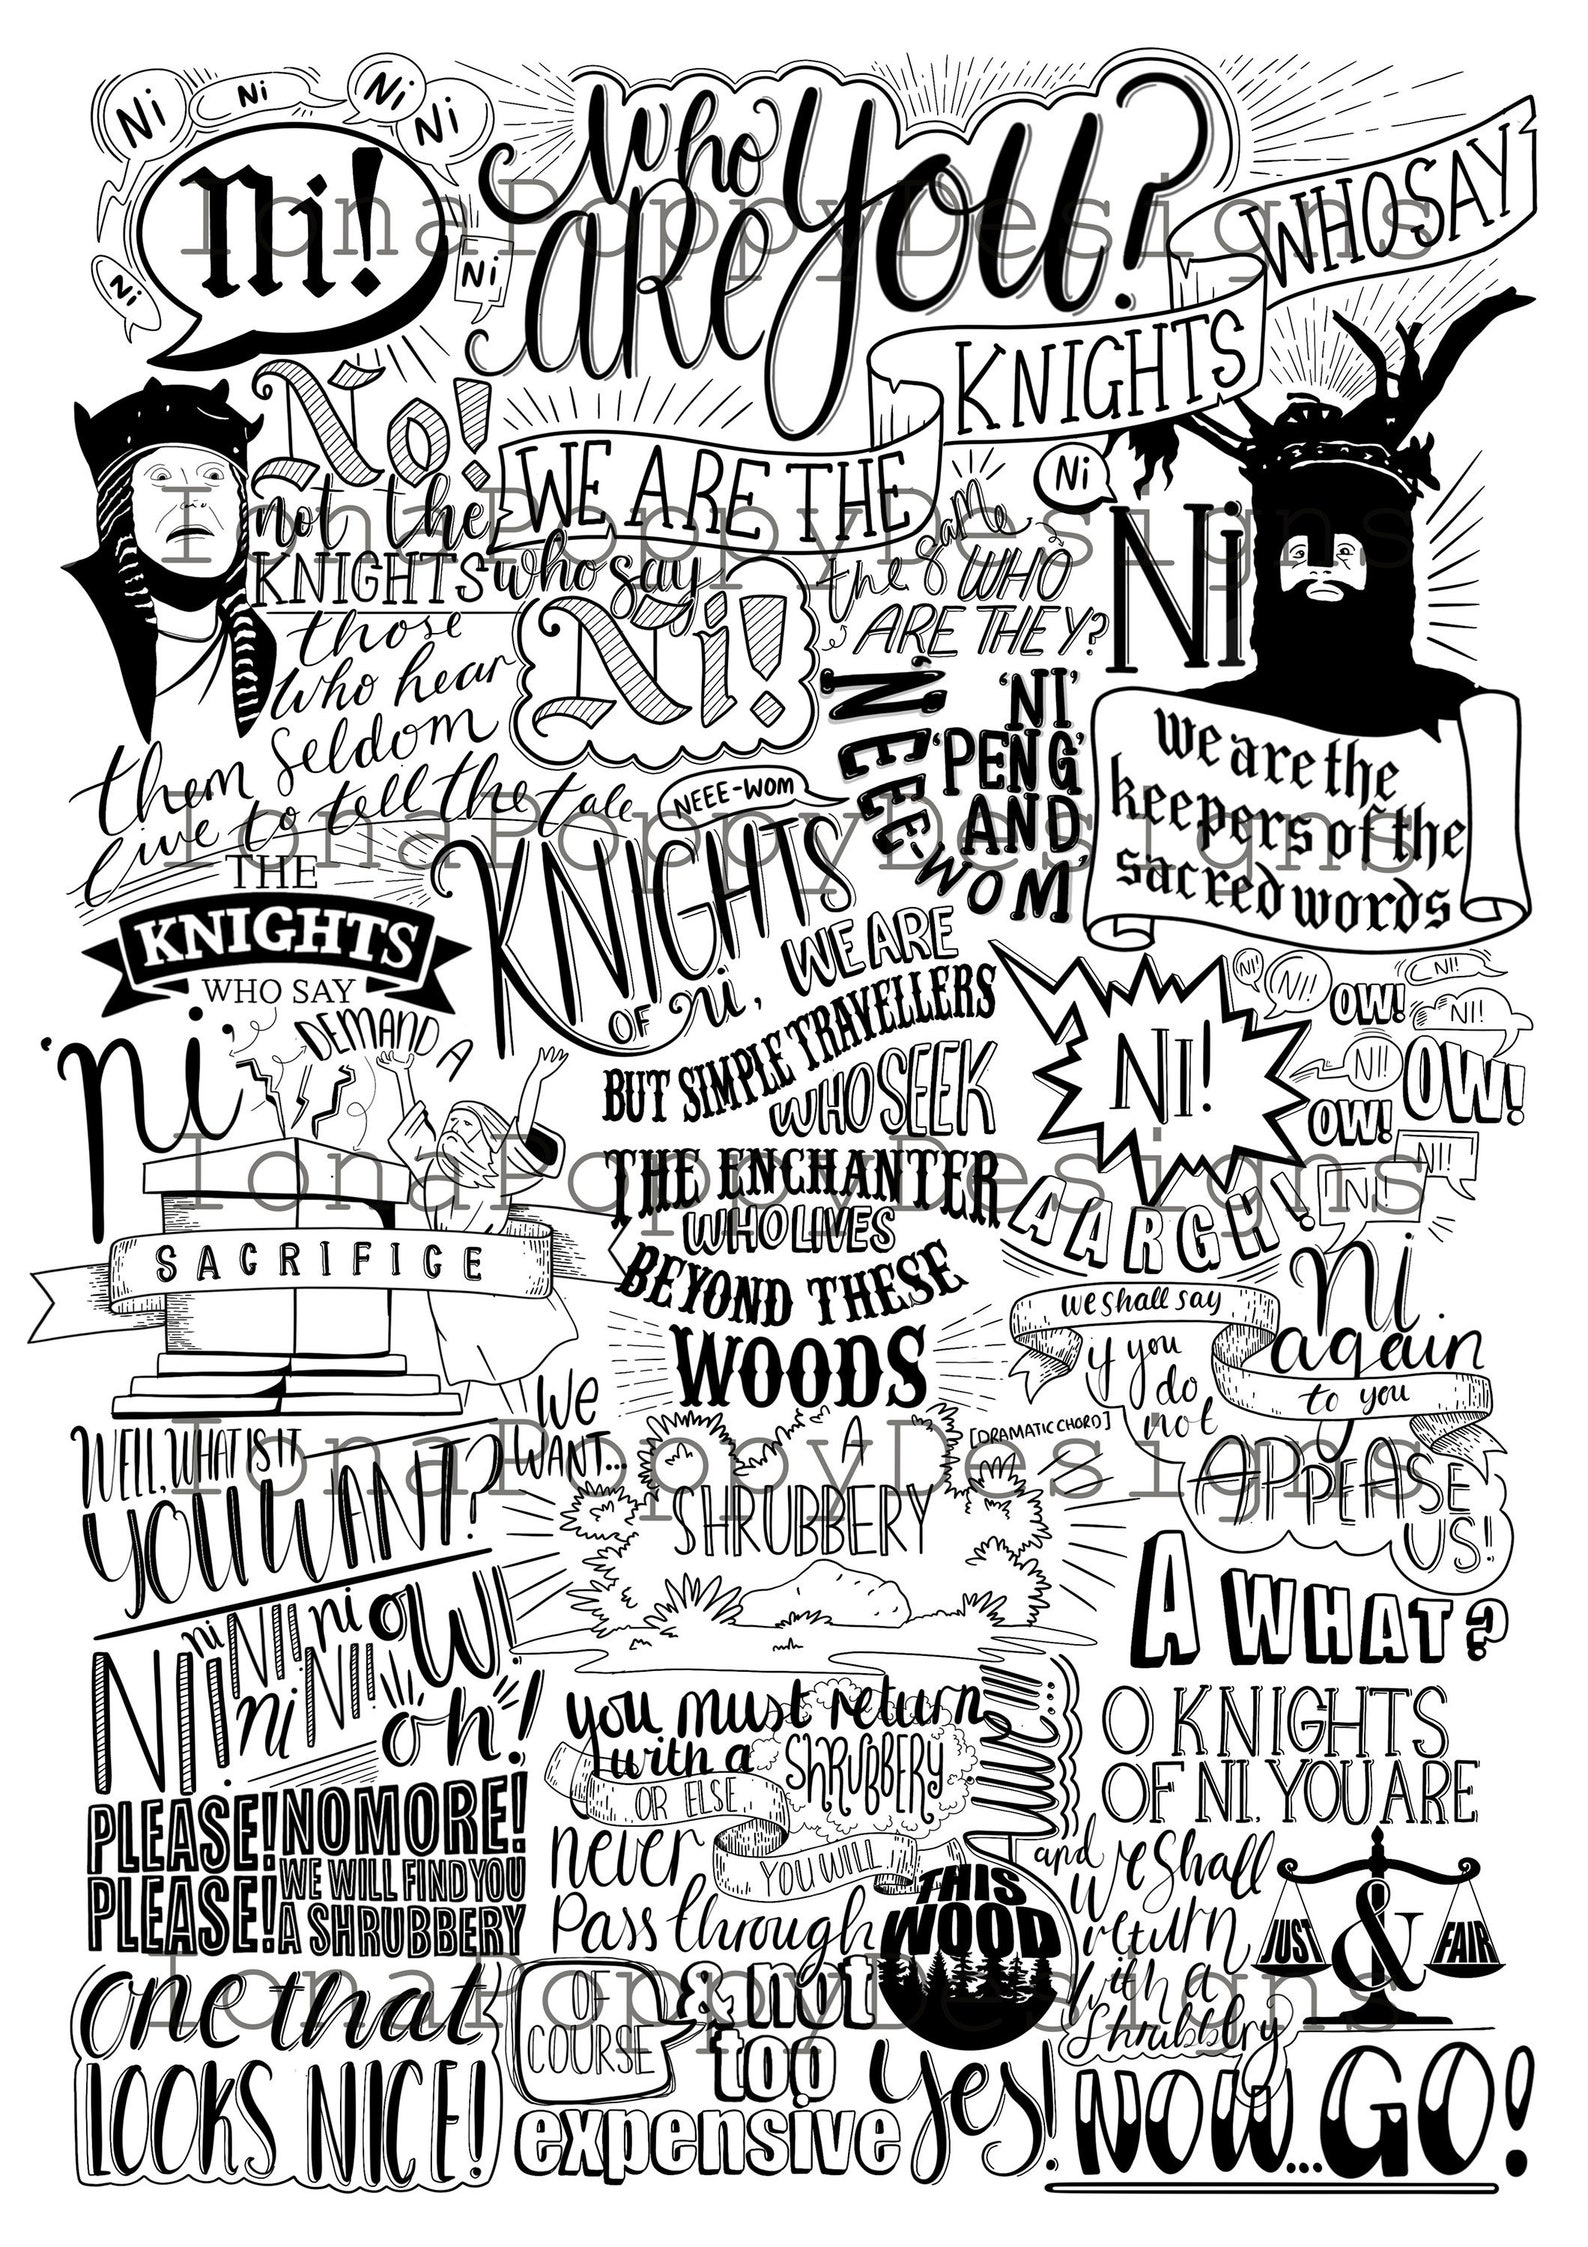 Ni
Ni
Ni
Ni
Ni!
Ni
Ni
who
are you?
we are the
KNIGHTS
WHO SAY
Ni
Ni
No!
not the
KNIGHTS who say
Ni!
the same
WHO
ARE THEY?
those
who hear
them seldom
live to tell the tale
we are the
keepers of the
sacred words
'NI'
'PENG'
AND
'NEEE-WOM'
NEEE-WOM
THE
KNIGHTS
WHO SAY
'ni'
DEMAND A
SACRIFICE
KNIGHTS
OF Ni,
WE ARE
BUT SIMPLE TRAVELLERS
WHO SEEK
THE ENCHANTER
WHO LIVES
BEYOND THESE
WOODS
NI!
NI!
NI!
OW!
NI!
NI!
NI!
OW!
OW!
NI!
NI!
AARGH!
we shall say
ni
again
to you
if you
do
not
APPEASE
US!
WELL, WHAT IS IT
YOU WANT?
We
WANT...
A
SHRUBBERY
[DRAMATIC CHORD]
A WHAT?
Ni!
ni
NI!
ni
ni
NI!
OW!
oh!
PLEASE!
PLEASE!
NO MORE!
WE WILL FIND YOU
A SHRUBBERY
you must return
with a
SHRUBBERY
OR ELSE
YOU WILL
never
Pass through
THIS
WOOD
Alive...
O KNIGHTS
OF NI, YOU ARE
JUST & FAIR
and
we shall
return
with a
Shrubbery
one that
LOOKS NICE!
OF
COURSE
& not
too
expensive
yes!
NOW...GO!
IonaPoppyDesigns
IonaPoppyDesigns
IonaPoppyDesigns
IonaPoppyDesigns
IonaPoppyDesigns
IonaPoppyDesigns